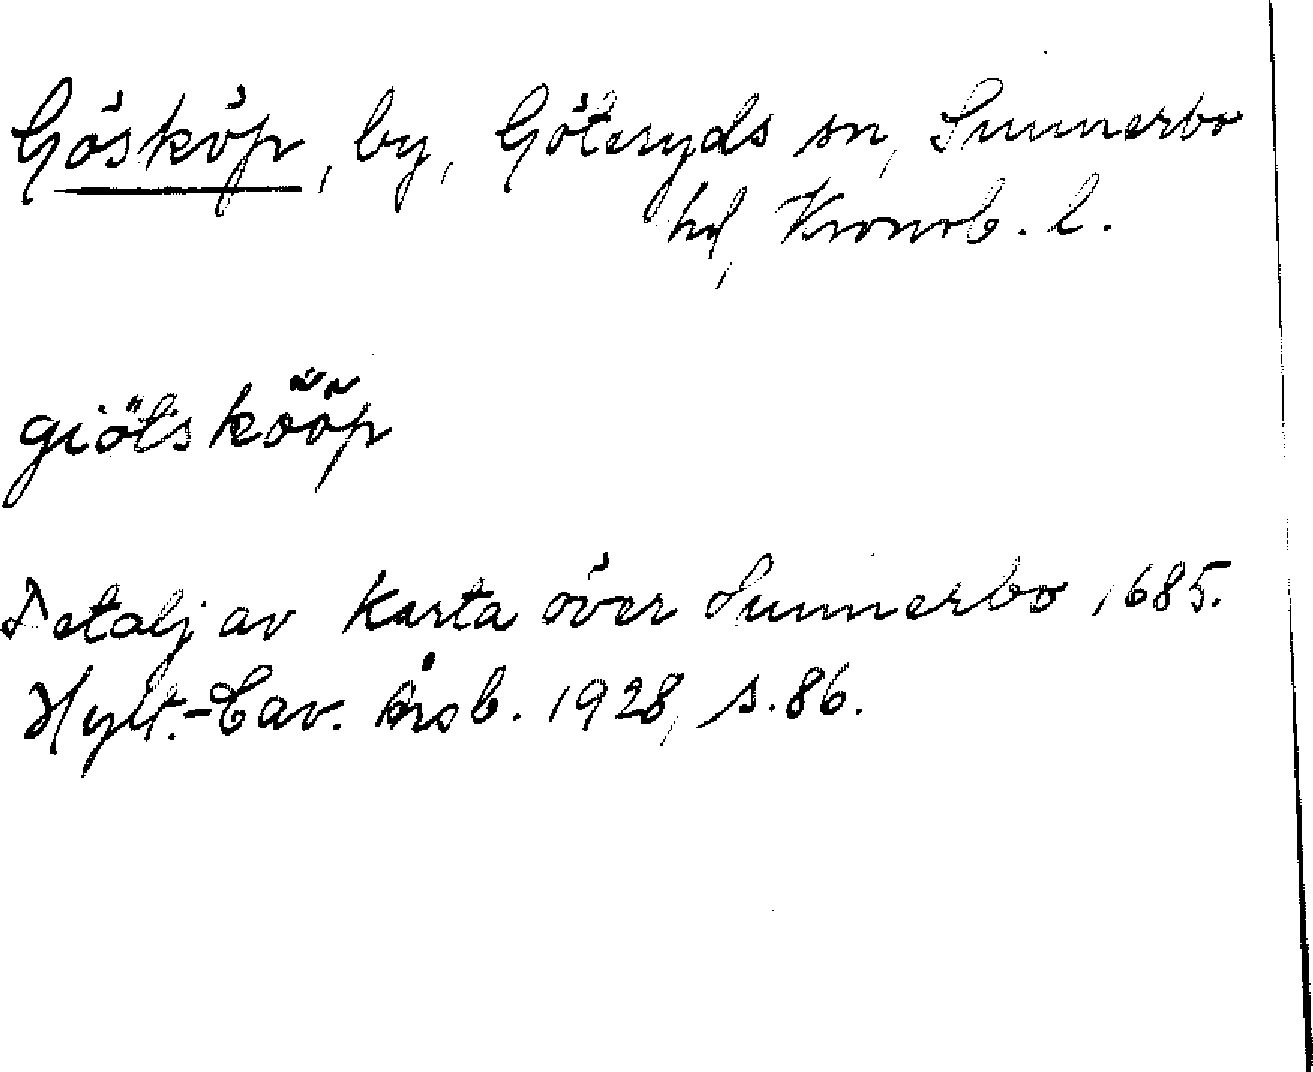 Gösköp, by, Göteryds sn, Sunnerbo
hd, Kronob. l.
giötskööp
Detalj av karta över Sunnerbo 1685.
Hylt.-Cav. Årsb. 1928, s. 86.